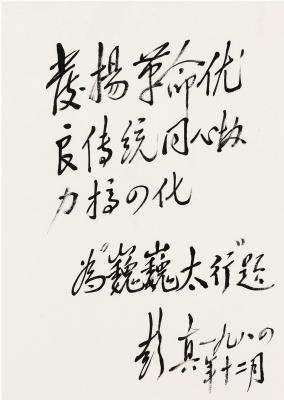 發揚革命优
良傳統同心协
力搞四化
為“巍巍太行”题
彭真一九八四
年十二月